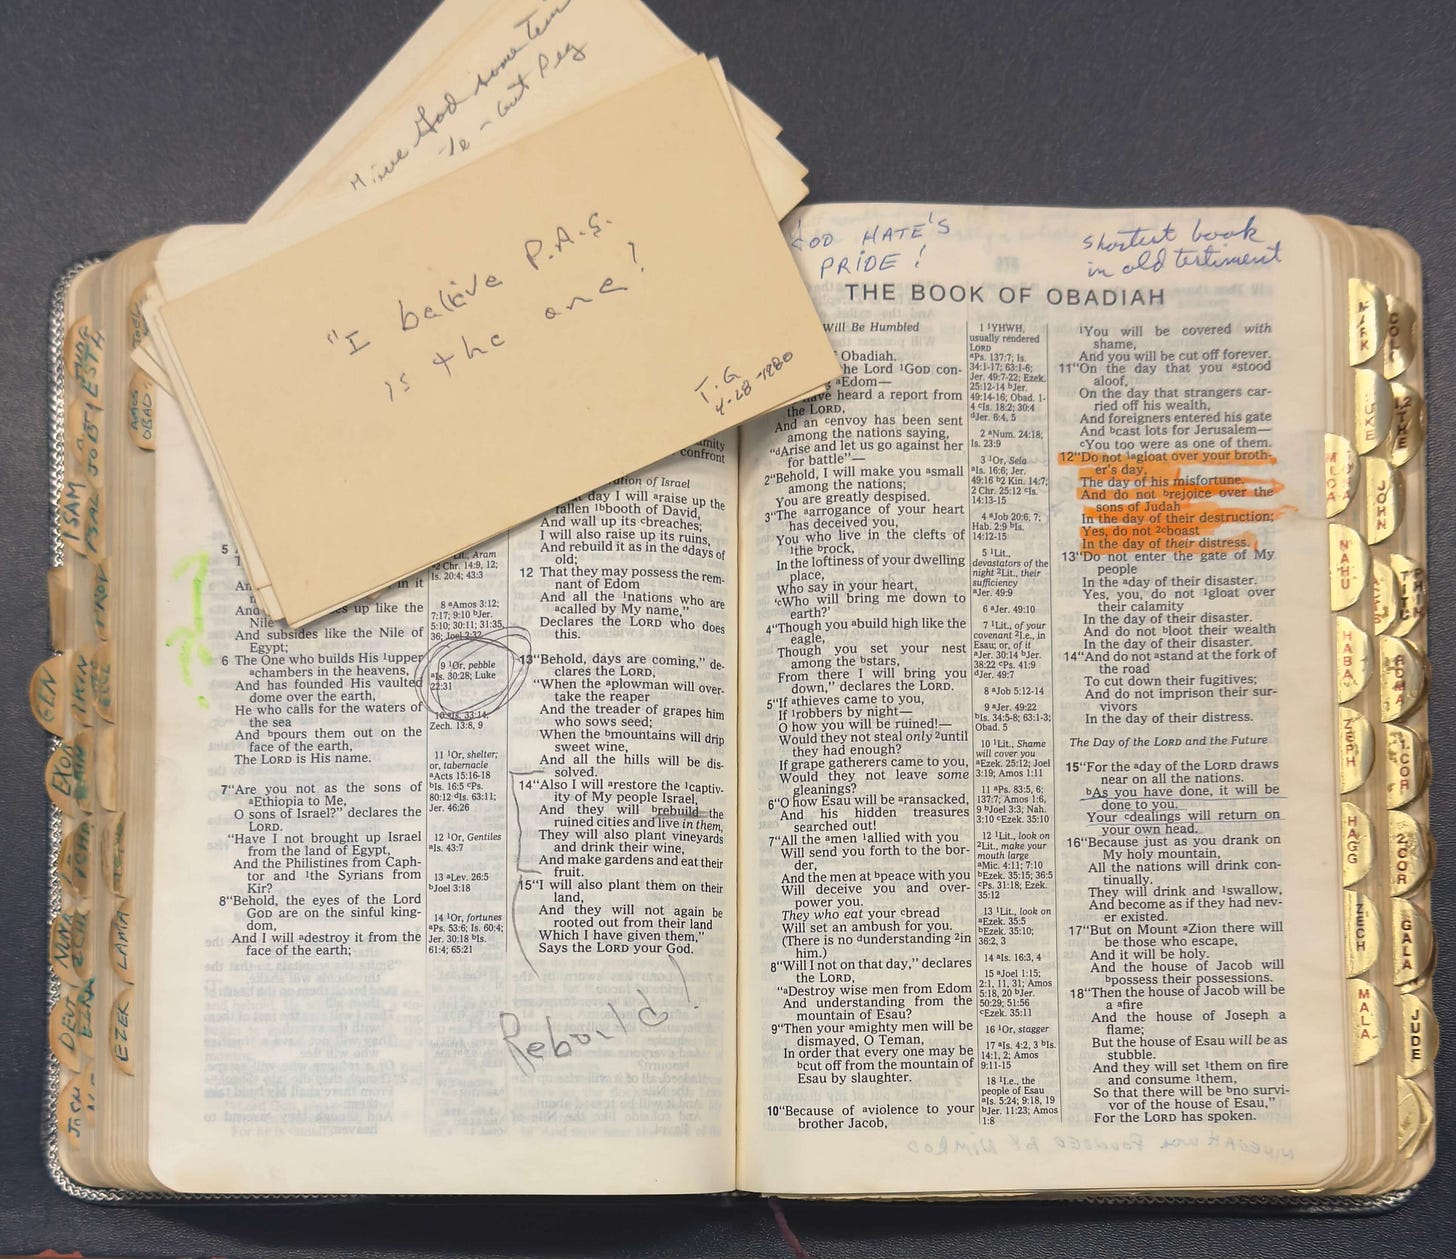 Give God some
"I believe P.A.G.
is the one!
T.G.
4-28-1980
GOD HATE'S
PRIDE!
shortest book
in old testiment
THE BOOK OF OBADIAH
confront
5
up like the
Nile
And subsides like the Nile of
Egypt;
6 The One who builds His ¹upper
ᵃchambers in the heavens,
And has founded His vaulted
dome over the earth,
He who calls for the waters of
the sea
And ᵇpours them out on the
face of the earth,
The LORD is His name.
7"Are you not as the sons of
ᵃEthiopia to Me,
O sons of Israel?" declares the
LORD.
"Have I not brought up Israel
from the land of Egypt,
And the Philistines from Caph-
tor and ¹the Syrians from
Kir?
8"Behold, the eyes of the Lord
GOD are on the sinful king-
dom,
And I will ᵃdestroy it from the
face of the earth;
Lit., Aram
Chr. 14:9, 12;
Is. 20:4; 43:3
8 ᵃAmos 3:12;
7:17; 9:10 ᵇJer.
5:10; 30:11; 31:35,
36; Joel 2:32
9 ¹Or, pebble
ᵃIs. 30:28; Luke
22:31
10 ᵃIs. 33:14;
Zech. 13:8, 9
11 ¹Or, shelter;
or, tabernacle
ᵃActs 15:16-18
ᵇIs. 16:5 ᶜPs.
80:12 ᵈIs. 63:11;
Jer. 46:26
12 ¹Or, Gentiles
ᵃIs. 43:7
13 ᵃLev. 26:5
ᵇJoel 3:18
14 ¹Or, fortunes
ᵃPs. 53:6; Is. 60:4;
Jer. 30:18 ᵇIs.
61:4; 65:21
of Israel
day I will ᵃraise up the
fallen ¹ᵇbooth of David,
And wall up its ᶜbreaches;
I will also raise up its ruins,
And rebuild it as in the ᵈdays of
old;
12 That they may possess the rem-
nant of Edom
And all the ¹nations who are
ᵃcalled by My name,"
Declares the LORD who does
this.
13"Behold, days are coming," de-
clares the LORD,
"When the ᵃplowman will over-
take the reaper
And the treader of grapes him
who sows seed;
When the ᵇmountains will drip
sweet wine,
And all the hills will be dis-
solved.
14"Also I will ᵃrestore the ¹captiv-
ity of My people Israel,
And they will ᵇrebuild the
ruined cities and live in them,
They will also plant vineyards
and drink their wine,
And make gardens and eat their
fruit.
15"I will also plant them on their
land,
And they will not again be
rooted out from their land
Which I have given them,"
Says the LORD your God.
Rebuild!
Will Be Humbled
Obadiah.
the Lord ¹GOD con-
ᵃEdom—
have heard a report from
the LORD,
And an ᶜenvoy has been sent
among the nations saying,
"ᵈArise and let us go against her
for battle"—
2"Behold, I will make you ᵃsmall
among the nations;
You are greatly despised.
3"The ᵃarrogance of your heart
has deceived you,
You who live in the clefts of
¹the ᵇrock,
In the loftiness of your dwelling
place,
Who say in your heart,
'ᶜWho will bring me down to
earth?'
4"Though you ᵃbuild high like the
eagle,
Though you set your nest
among the ᵇstars,
From there I will bring you
down," declares the LORD.
5"If ᵃthieves came to you,
If ¹robbers by night—
O how you will be ruined!—
Would they not steal only ²until
they had enough?
If grape gatherers came to you,
Would they not leave some
gleanings?
6"O how Esau will be ᵃransacked,
And his hidden treasures
searched out!
7"All the ᵃmen ¹allied with you
Will send you forth to the bor-
der,
And the men at ᵇpeace with you
Will deceive you and over-
power you.
They who eat your ᶜbread
Will set an ambush for you.
(There is no ᵈunderstanding ²in
him.)
8"Will I not on that day," declares
the LORD,
"ᵃDestroy wise men from Edom
And understanding from the
mountain of Esau?
9"Then your ᵃmighty men will be
dismayed, O Teman,
In order that every one may be
ᵇcut off from the mountain of
Esau by slaughter.
10"Because of ᵃviolence to your
brother Jacob,
1 ¹YHWH,
usually rendered
LORD
ᵃPs. 137:7; Is.
34:1-17; 63:1-6;
Jer. 49:7-22; Ezek.
25:12-14 ᵇJer.
49:14-16; Obad. 1-
4 ᶜIs. 18:2; 30:4
ᵈJer. 6:4, 5
2 ᵃNum. 24:18;
Is. 23:9
3 ¹Or, Sela
ᵃIs. 16:6; Jer.
49:16 ᵇ2 Kin. 14:7;
2 Chr. 25:12 ᶜIs.
14:13-15
4 ᵃJob 20:6, 7;
Hab. 2:9 ᵇIs.
14:12-15
5 ¹Lit.,
devastators of the
night ²Lit., their
sufficiency
ᵃJer. 49:9
6 ᵃJer. 49:10
7 ¹Lit., of your
covenant ²I.e., in
Esau; or, of it
ᵃJer. 30:14 ᵇJer.
38:22 ᶜPs. 41:9
ᵈJer. 49:7
8 ᵃJob 5:12-14
9 ᵃJer. 49:22
ᵇIs. 34:5-8; 63:1-3;
Obad. 5
10 ¹Lit., Shame
will cover you
ᵃEzek. 25:12; Joel
3:19; Amos 1:11
11 ᵃPs. 83:5, 6;
137:7; Amos 1:6,
9 ᵇJoel 3:3; Nah.
3:10 ᶜEzek. 35:10
12 ¹Lit., look on
²Lit., make your
mouth large
ᵃMic. 4:11; 7:10
ᵇEzek. 35:15; 36:5
ᶜPs. 31:18; Ezek.
35:12
13 ¹Lit., look on
ᵃEzek. 35:5
ᵇEzek. 35:10;
36:2, 3
14 ᵃIs. 16:3, 4
15 ᵃJoel 1:15;
2:1, 11, 31; Amos
5:18, 20 ᵇJer.
50:29; 51:56
ᶜEzek. 35:11
16 ¹Or, stagger
17 ᵃIs. 4:2, 3 ᵇIs.
14:1, 2; Amos
9:11-15
18 ¹I.e., the
people of Esau
ᵃIs. 5:24; 9:18, 19
ᵇJer. 11:23; Amos
1:8
¹You will be covered with
shame,
And you will be cut off forever.
11"On the day that you ᵃstood
aloof,
On the day that strangers car-
ried off his wealth,
And foreigners entered his gate
And ᵇcast lots for Jerusalem—
ᶜYou too were as one of them.
12"Do not ¹ᵃgloat over your broth-
er's day,
The day of his misfortune.
And do not ᵇrejoice over the
sons of Judah
In the day of their destruction;
Yes, do not ²ᶜboast
In the day of their distress.
13"Do not enter the gate of My
people
In the ᵃday of their disaster.
Yes, you, do not ¹gloat over
their calamity
In the day of their disaster.
And do not ᵇloot their wealth
In the day of their disaster.
14"And do not ᵃstand at the fork of
the road
To cut down their fugitives;
And do not imprison their sur-
vivors
In the day of their distress.
The Day of the LORD and the Future
15"For the ᵃday of the LORD draws
near on all the nations.
ᵇAs you have done, it will be
done to you.
Your ᶜdealings will return on
your own head.
16"Because just as you drank on
My holy mountain,
All the nations will drink con-
tinually.
They will drink and ¹swallow,
And become as if they had nev-
er existed.
17"But on Mount ᵃZion there will
be those who escape,
And it will be holy.
And the house of Jacob will
ᵇpossess their possessions.
18"Then the house of Jacob will be
a ᵃfire
And the house of Joseph a
flame;
But the house of Esau will be as
stubble.
And they will set ¹them on fire
and consume ¹them,
So that there will be ᵇno survi-
vor of the house of Esau,"
For the LORD has spoken.
JOEL
AMOS
OBAD
ESTH
JOB
1 SAM
GEN
EXOD
DEUT
EZRA
LAMA
EZER
MARK
COL
LUKE
2 THE
JOHN
NAHU
ACTS
TITU
PHIM
HABA
ROMA
ZEPH
1 COR
HAGG
2 COR
ZECH
GALA
MALA
JUDE